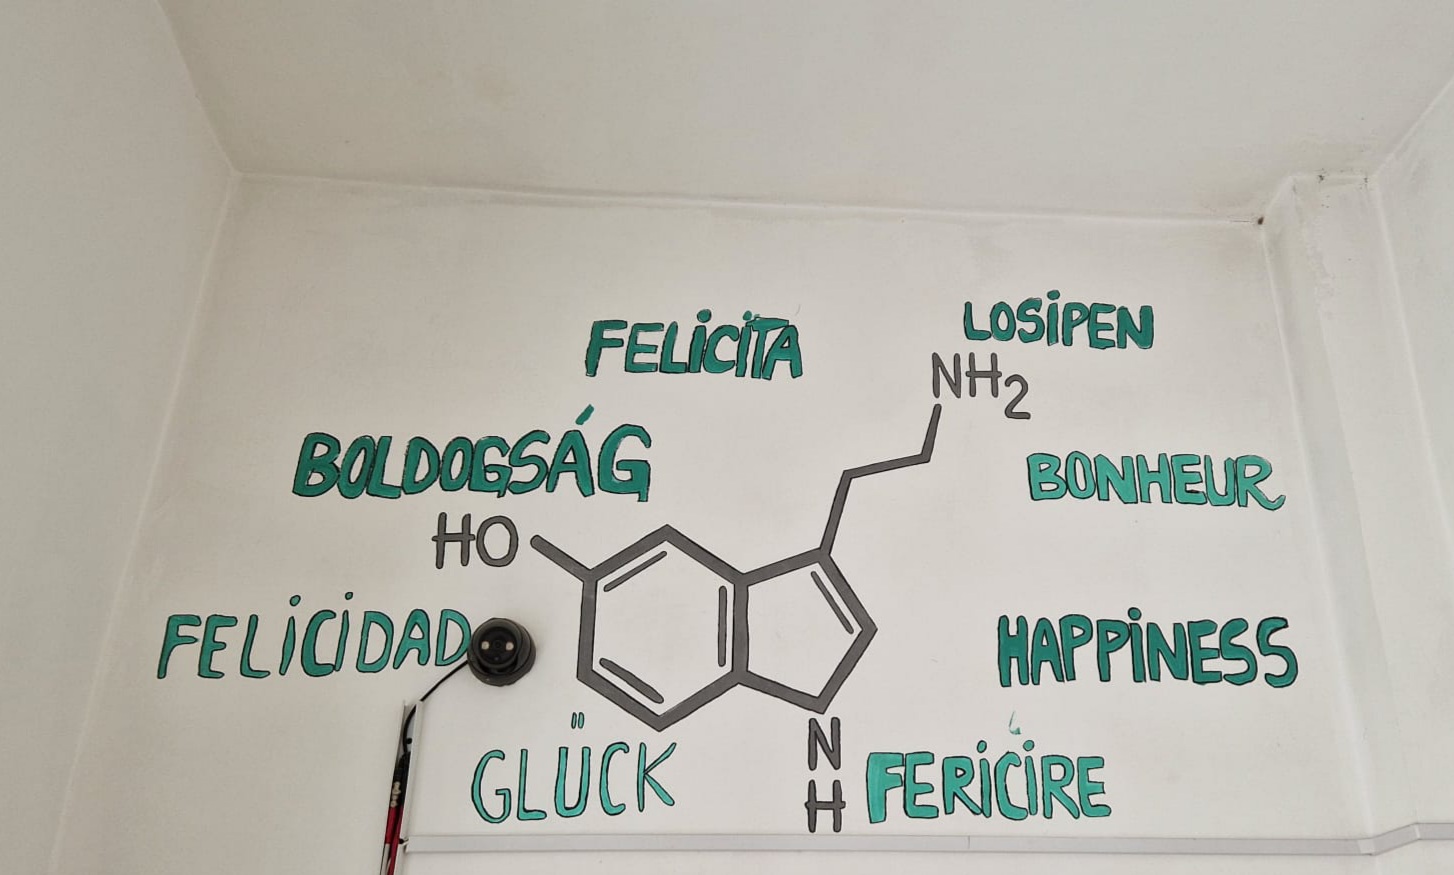 FELICITA
LOSIPEN
NH2
BOLDOGSÁG
BONHEUR
HO
FELICIDAD
HAPPINESS
GLÜCK
N
H
FERICIRE